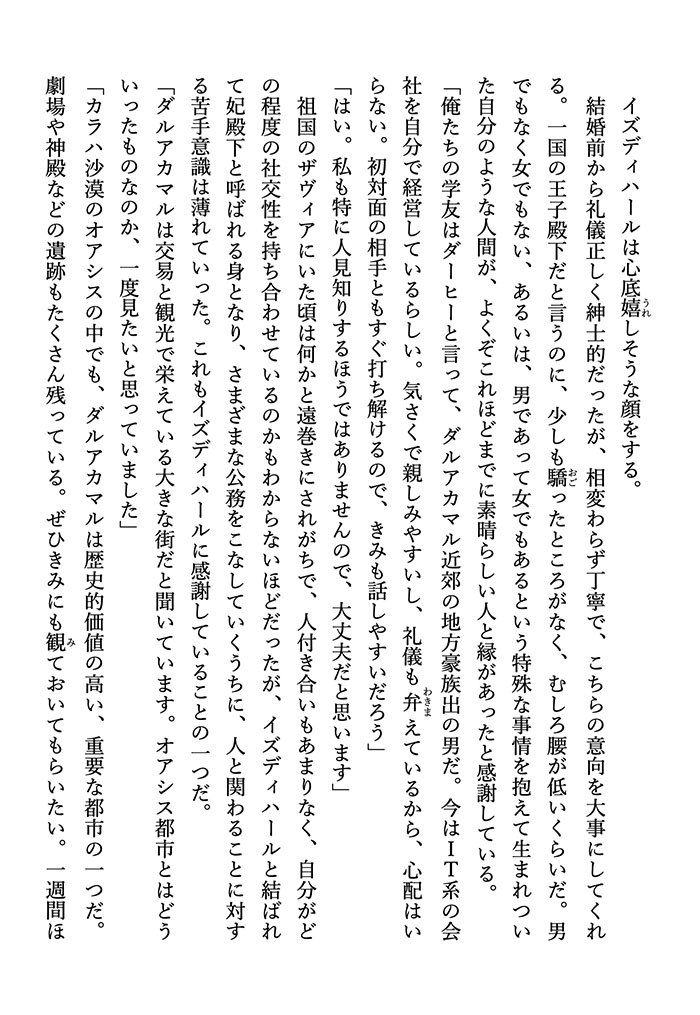 イズディハールは心底嬉しそうな顔をする。
結婚前から礼儀正しく紳士的だったが、相変わらず丁寧で、こちらの意向を大事にしてくれ
る。一国の王子殿下だと言うのに、少しも驕ったところがなく、むしろ腰が低いくらいだ。男
でもなく女でもない、あるいは、男であって女でもあるという特殊な事情を抱えて生まれつい
た自分のような人間が、よくぞこれほどまでに素晴らしい人と縁があったと感謝している。
「俺たちの学友はダーヒーと言って、ダルアカマル近郊の地方豪族出の男だ。今はＩＴ系の会
社を自分で経営しているらしい。気さくで親しみやすいし、礼儀も弁えているから、心配はい
らない。初対面の相手ともすぐ打ち解けるので、きみも話しやすいだろう」
「はい。私も特に人見知りするほうではありませんので、大丈夫だと思います」
祖国のザヴィアにいた頃は何かと遠巻きにされがちで、人付き合いもあまりなく、自分がど
の程度の社交性を持ち合わせているのかもわからないほどだったが、イズディハールと結ばれ
て妃殿下と呼ばれる身となり、さまざまな公務をこなしていくうちに、人と関わることに対す
る苦手意識は薄れていった。これもイズディハールに感謝していることの一つだ。
「ダルアカマルは交易と観光で栄えている大きな街だと聞いています。オアシス都市とはどう
いったものなのか、一度見たいと思っていました」
「カラハ沙漠のオアシスの中でも、ダルアカマルは歴史的価値の高い、重要な都市の一つだ。
劇場や神殿などの遺跡もたくさん残っている。ぜひきみにも観ておいてもらいたい。一週間ほ